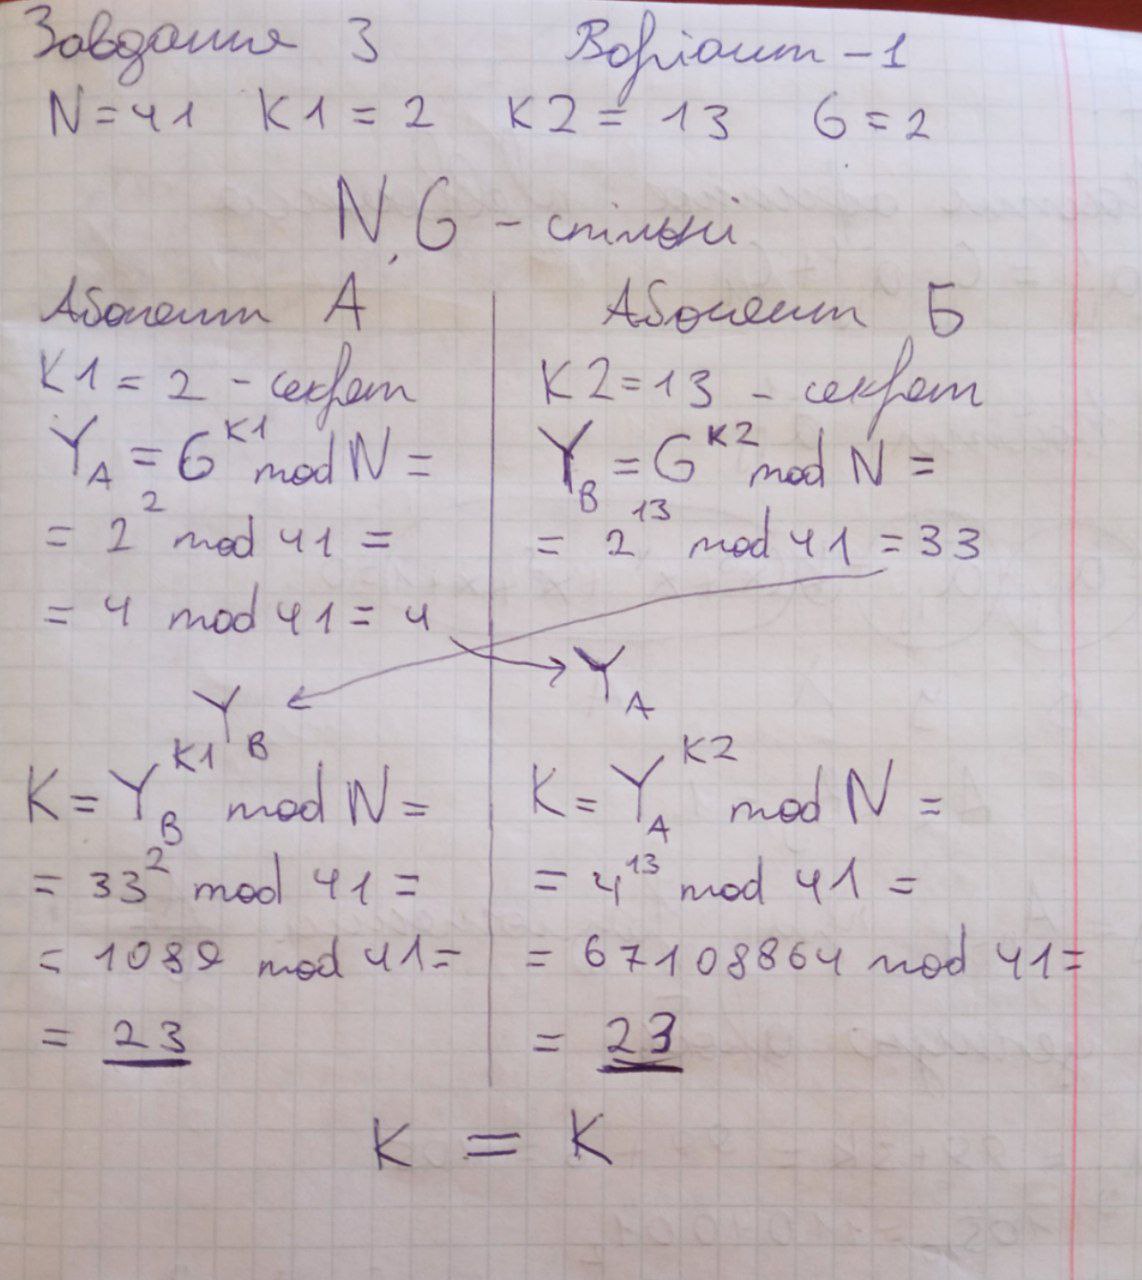 Завдання 3 Варіант - 1
N = 41 K1 = 2 K2 = 13 G = 2
N, G - спільні
Абонент А
K1 = 2 - секрет
Y_A = G^K1 mod N =
= 2^2 mod 41 =
= 4 mod 41 = 4
Y_B
K = Y_B^K1 mod N =
= 33^2 mod 41 =
= 1089 mod 41 =
= 23
Абонент Б
K2 = 13 - секрет
Y_B = G^K2 mod N =
= 2^13 mod 41 = 33
Y_A
K = Y_A^K2 mod N =
= 4^13 mod 41 =
= 67108864 mod 41 =
= 23
K = K